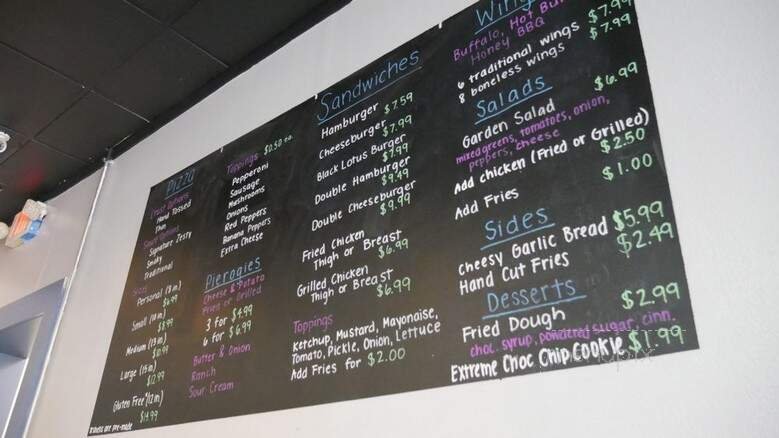 Pizza
Crust Options
Hand Tossed
Thin
Sauce Options
Signature Zesty
Smoky
Traditional
Sizes
Personal
$6.99
Small (10in)
$8.99
Medium (13in)
$10.99
Large (15in)
$12.99
Gluten Free* (12in)
$14.99
*crusts are pre-made
Toppings $0.50 ea.
Pepperoni
Sausage
Mushrooms
Onions
Red Peppers
Banana Peppers
Extra Cheese
Pierogies
Cheese & Potato
Fried or Grilled
3 for $4.99
6 for $6.99
Butter & Onion
Ranch
Sour Cream
Sandwiches
Hamburger $7.59
Cheeseburger $7.99
Black Lotus Burger
$7.99
Double Hamburger
$9.49
Double Cheeseburger
$9.99
Fried Chicken
Thigh or Breast
$6.99
Grilled Chicken
Thigh or Breast
$6.99
Toppings
Ketchup, Mustard, Mayonaise,
Tomato, Pickle, Onion, Lettuce
Add Fries for $2.00
Wings
Buffalo, Hot Buffalo
Honey BBQ
6 traditional wings $7.99
8 boneless wings $7.99
Salads
Garden Salad $6.99
mixed greens, tomatoes, onion,
peppers, cheese
Add chicken (Fried or Grilled)
$2.50
Add Fries $1.00
Sides
Cheesy Garlic Bread $5.99
Hand Cut Fries $2.49
Desserts
Fried Dough $2.99
choc. syrup, powdered sugar, cinn.
Extreme Choc Chip Cookie $1.99